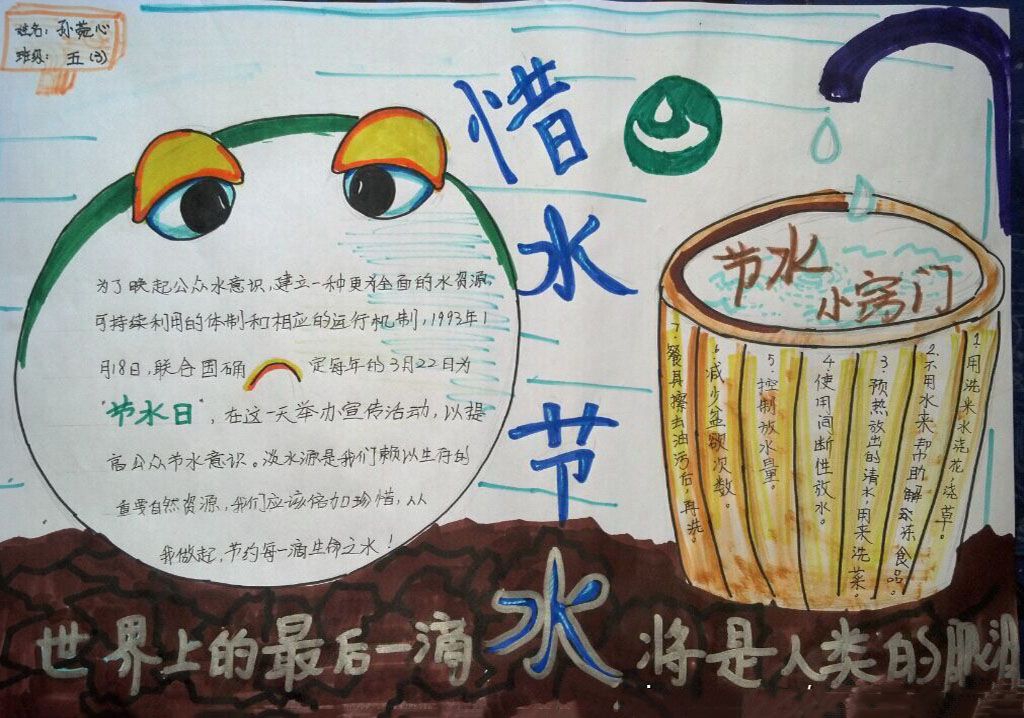 姓名：孙菀心
班级：五(3)
惜水节水
为了唤起公众水意识，建立一种更为全面的水资源
可持续利用的体制和相应的运行机制，1992年1
月18日，联合国确定每年的3月22日为
“节水日”，在这一天举办宣传活动，以提
高公众节水意识。淡水源是我们赖以生存的
重要自然资源，我们应该倍加珍惜，从
我做起，节约每一滴生命之水！
节水
小窍门
1.用洗米水浇花浇草。
2.不用水来帮助解冻食品。
3.预热放出的清水用来洗菜。
4.使用间断性放水。
5.控制放水量。
6.减少盆欲次数。
7.餐具擦去油污后，再洗。
世界上的最后一滴水将是人类的眼泪